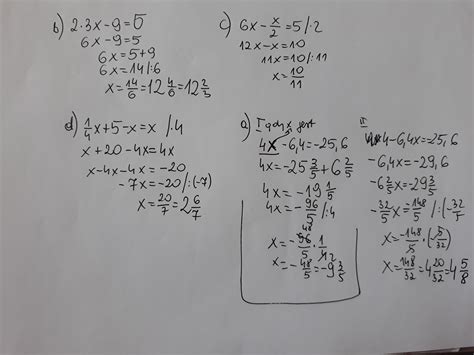 b) 2·3x-9=5
6x-9=5
6x=5+9
6x=14/:6
x=14/6=12 4/6=12 2/3
c) 6x-x/2=5/·2
12x-x=10
11x=10/:11
x=10/11
d) 1/4x+5-x=x /·4
x+20-4x=4x
x-4x-4x=-20
-7x=-20/:(-7)
x=20/7=2 6/7
a) I gdy x jest
4x-6,4=-25,6
4x=-25 3/5+6 2/5
4x=-19 1/5
4x=-96/5/:4
x=-96/5·1/4
x=-48/5=-9 3/5
II
4-6,4x=-25,6
-6,4x=-29,6
-6 2/5x=-29 3/5
-32/5x=-148/5/:(-32/5
x=-148/5·(-5/32)
x=148/32=4 20/32=4 5/8